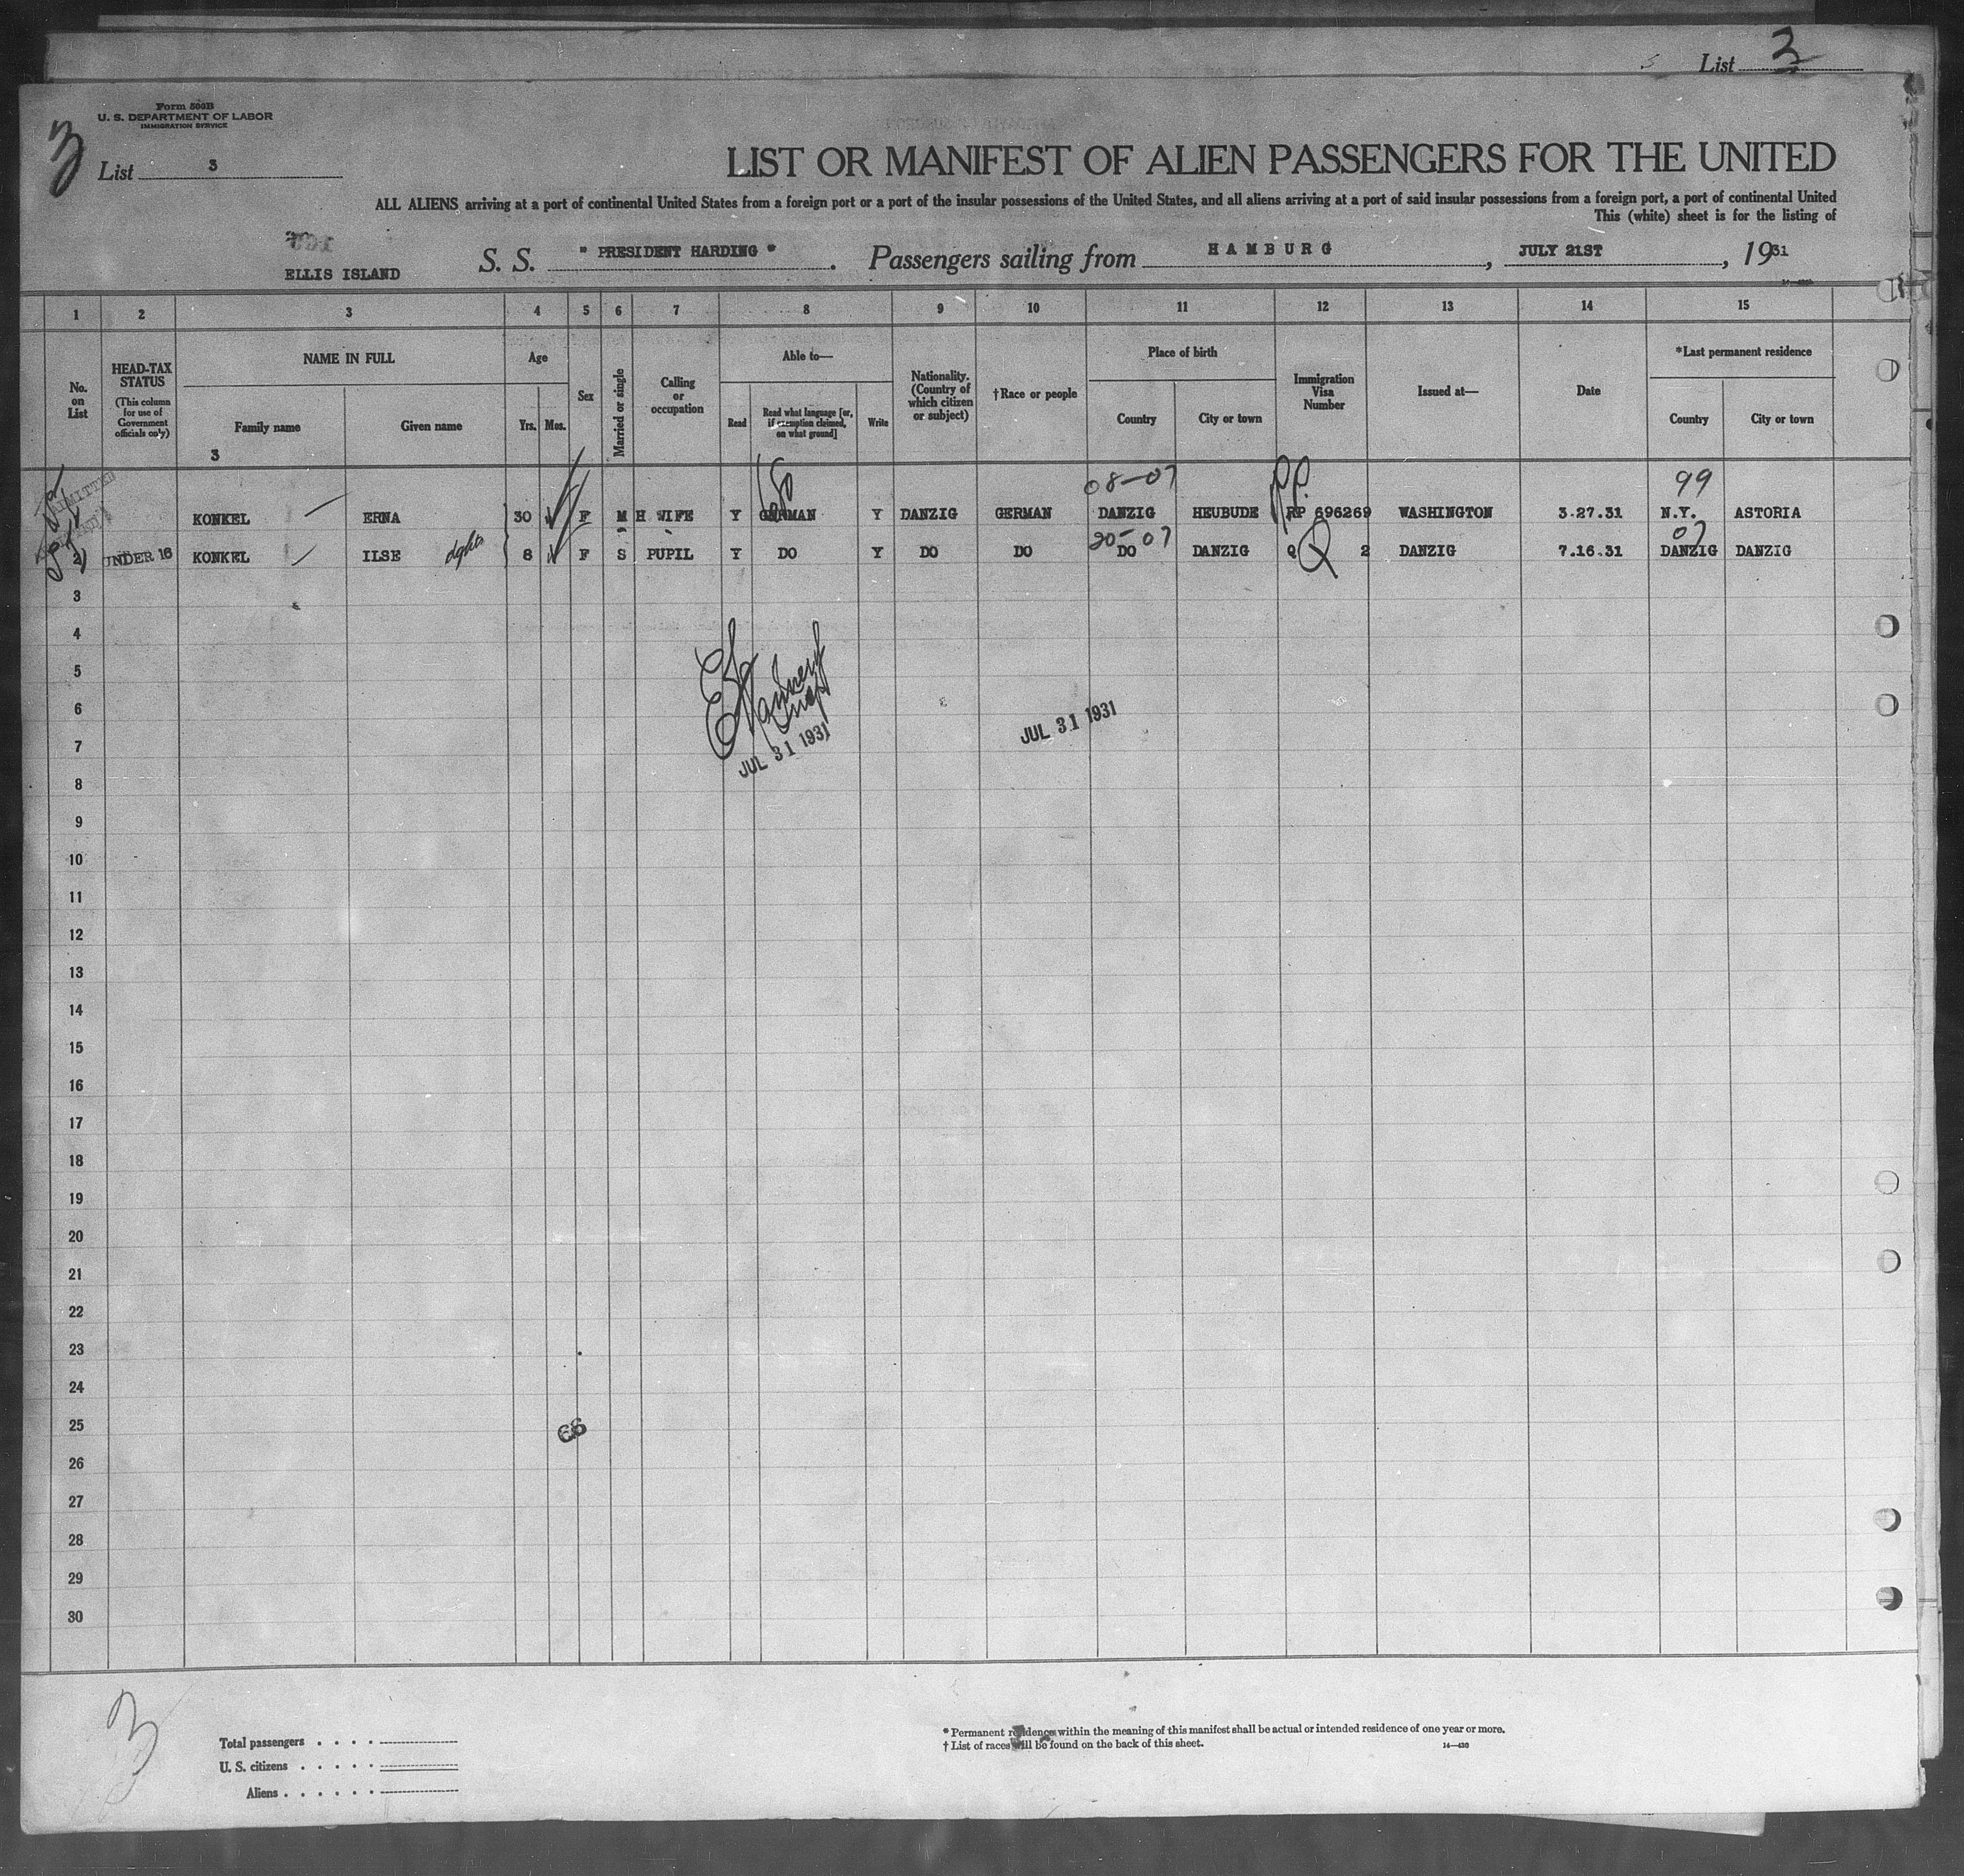 List 3
Form 500B
U. S. DEPARTMENT OF LABOR
IMMIGRATION SERVICE
3
List 3
LIST OR MANIFEST OF ALIEN PASSENGERS FOR THE UNITED
ALL ALIENS arriving at a port of continental United States from a foreign port or a port of the insular possessions of the United States, and all aliens arriving at a port of said insular possessions from a foreign port, a port of continental United
This (white) sheet is for the listing of
ELLIS ISLAND S. S. " PRESIDENT HARDING " . Passengers sailing from HAMBURG , JULY 21ST , 1931
1 2 3 4 5 6 7 8 9 10 11 12 13 14 15
No. on List
HEAD-TAX STATUS
(This column for use of Government officials only)
NAME IN FULL
Family name
Given name
Age
Yrs. Mos.
Sex
Married or single
Calling or occupation
Able to—
Read
Read what language [or, if exemption claimed, on what ground]
Write
Nationality. (Country of which citizen or subject)
†Race or people
Place of birth
Country
City or town
Immigration Visa Number
Issued at—
Date
*Last permanent residence
Country
City or town
3
08-07 99
ADMITTED KONKEL ERNA 30 F M H WIFE Y GERMAN Y DANZIG GERMAN DANZIG HEUBUDE RP 696269 WASHINGTON 3.27.31 N.Y. ASTORIA
20-07 07
2 UNDER 16 KONKEL ILSE dghtr 8 F S PUPIL Y DO Y DO DO DO DANZIG Q 2 DANZIG 7.16.31 DANZIG DANZIG
3
4
5
6
7
JUL 31 1931
JUL 31 1931
8
9
10
11
12
13
14
15
16
17
18
19
20
21
22
23
24
25
66
26
27
28
29
30
3
Total passengers . . . .
U. S. citizens . . . . .
Aliens . . . . . .
* Permanent residence within the meaning of this manifest shall be actual or intended residence of one year or more.
† List of races will be found on the back of this sheet.
14—430